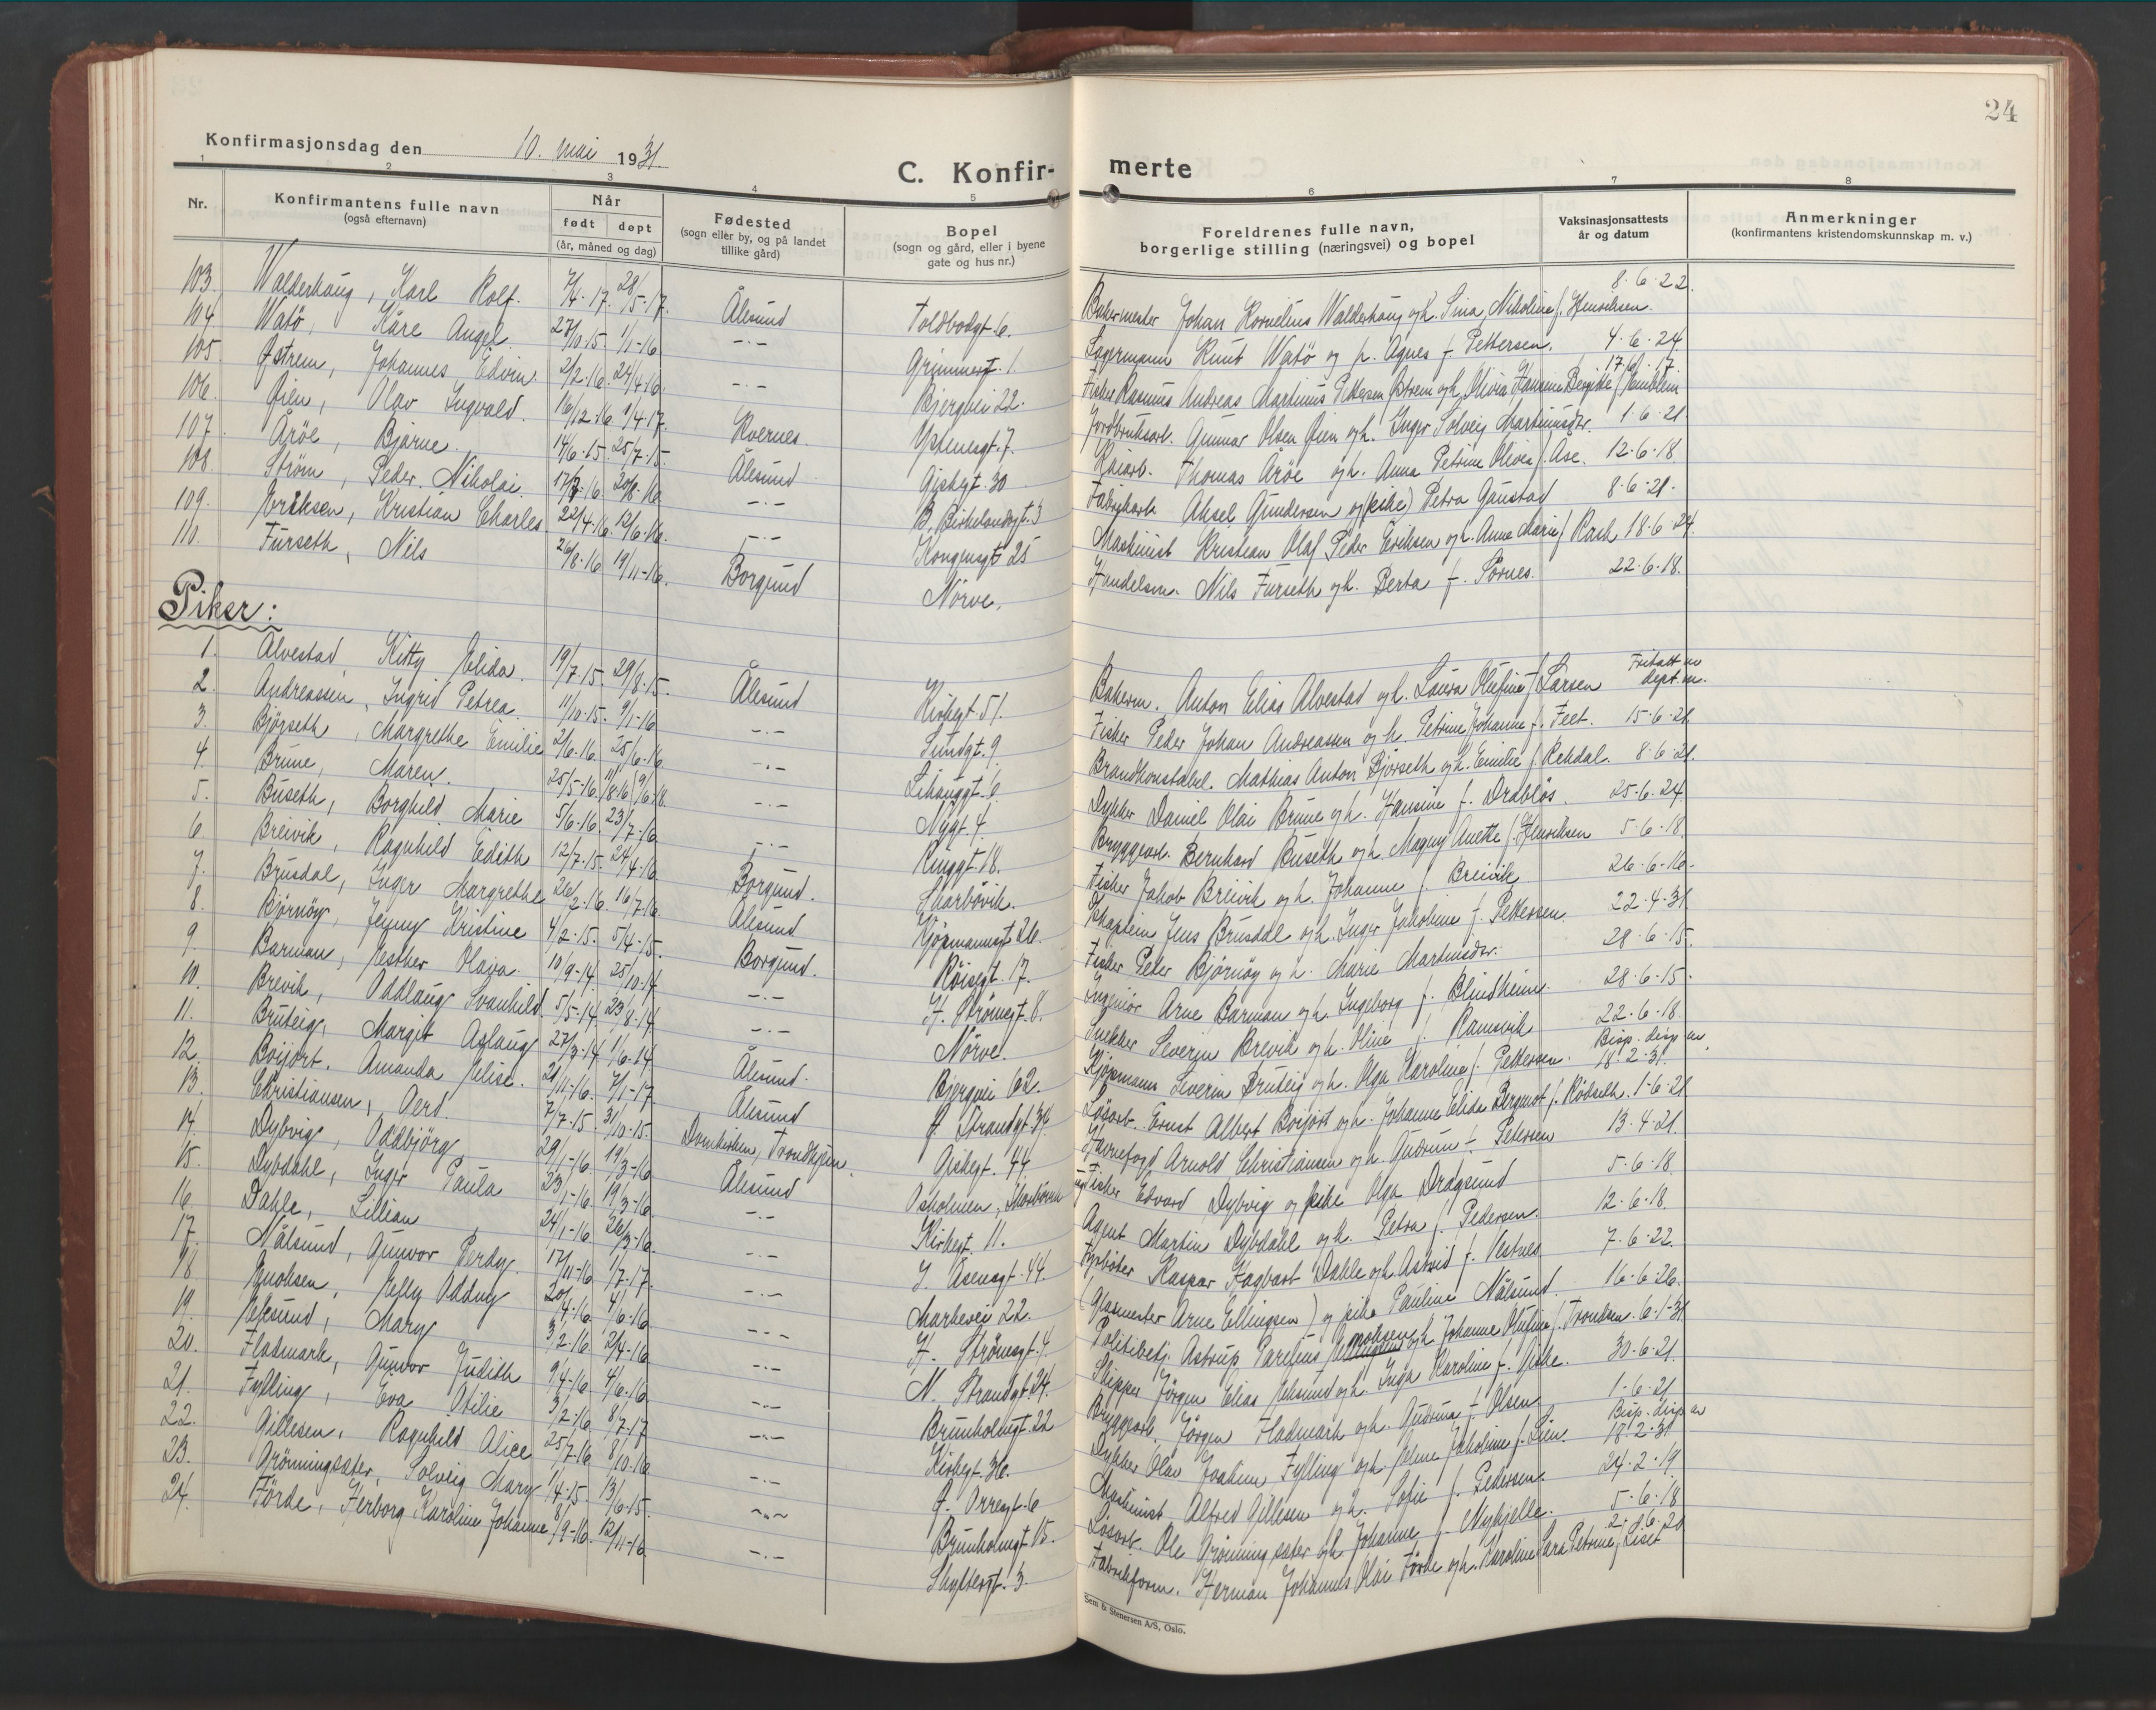 24
Konfirmasjonsdag den 10. mai 1931.
C. Konfir- merte
1 2 3 4 5 6 7 8
Nr. Konfirmantens fulle navn (også efternavn) Når født døpt (år, måned og dag) Fødested (sogn eller by, og på landet tillike gård) Bopel (sogn og gård, eller i byene gate og hus nr.) Foreldrenes fulle navn, borgerlige stilling (næringsvei) og bopel Vaksinasjonsattests år og datum Anmerkninger (konfirmantens kristendomskunnskap m. v.)
103. Walderhaug, Karl Rolf. 7/4-17. 28/5-17. Ålesund Toldbodgt. 6. Bakermester Johan Kornelius Walderhaug og h. Sina Nikoline f. Henriksen. 8-6-22.
104 Watö, Kåre Angel. 27/10-15. 1/1-16 -.- Grimmergt. 1. Lagermann Knut Watö og h. Agnes f. Pettersen. 4-6-24
105 Østrem, Johannes Edvin. 2/2-16. 24/4-16. -.- Bjergvei 22. Fisker Rasmus Andreas Martinus Pettersen Østrem og h. Olivia Hansine Bergitte f. Emblem 17-9-17.
106. Øien, Olav Ingvald. 16/12-16 9/4-17. Kvernes. Yttenesgt. 7. Jordbruksarb. Gunnar Olsen Øien og h. Inger Solveig Martinusdtr. 1-6-21
107. Åröe, Bjarne. 14/6-15. 25/7-15. Ålesund Giskegt. 30 Kaiarb. Thomas Åröe og h. Anna Petrine Olivia f. Åse. 12-6-18.
108. Ström, Peder Nikolai. 17/7-16. 20/8-16. -.- B. Birkelandsgt. 3 Fabrikarb. Aksel Gundersen og (pike) Petra Gaustad 8-6-21.
109. Eriksen, Kristian Charles 22/4-16. 12/6-16. -.- Kongensgt 25 Maskinist Kristian Olaf Peder Eriksen og h. Anna Marie f. Rask 18-6-24.
110. Furseth, Nils 26/8-16 19/11-16. Borgund Nörve. Handelsm. Nils Furseth og h. Berta f. Sörnes. 22-6-18.
Piker:
1. Alvestad, Kitty Elida. 19/7-15. 29/8-15. Ålesund Kirkegt. 51. Bakerm. Anton Elias Alvestad og h. Laura Olufine f. Larsen Fritatt av dept.
2. Andreassen, Ingrid Petrea. 11/10-15. 9/1-16 -.- Sundgt. 9. Fisker Peder Johan Andreassen og h. Petrine Johanne f. Feet. 15-6-21.
3. Björseth, Margrethe Emilie 2/6-16. 25/6-16 -.- Lihauggt. 6 Brandkonstabel. Mathias Anton Björseth og h. Emilie f. Rekdal. 8-6-21.
4. Brune, Maren. 25/5-16. -.- Nygt. 4. Dykker Daniel Olai Brune og h. Hansine f. Drabløs. 25-6-24.
5. Buseth, Borghild Marie 5/6-16. 23/7-16 -.- Ringgt. 18. Bryggearb. Bernhard Buseth og h. Magny Anette f. Henriksen 5-6-18.
6. Breivik, Ragnhild Edith 12/7-15. 24/4-16 Borgund. Skarbövik. Fisker Jakob Breivik og h. Johanne f. Breivik 26-6-16.
7. Brusdal, Inger Margrethe 26/2-16. 16/7-16. Ålesund Kjöpmannsgt. 26. Skaptein Jens Brusdal og h. Inger Jakobine f. Pettersen. 22-4-31
8. Björnöy, Jenny Kristine 4/2-15. 5/4-15. Borgund. Röisegt. 17. Fisker Peter Björnöy og h. Marie Martinsdtr. 28-6-15.
9. Barman, Esther Olava. 10/9-14. 25/10-14 -.- H. Strömsgt. 8. Ingeniör Arne Barman og h. Ingeborg f. Blindheim. 28-6-15.
10. Brevik, Oddlaug Svanhild 5/5-14. 23/8-14 -.- Nörve. Snekker Severin Brevik og h. Oline f. Ramsvik 22-6-18.
11. Bruteig, Margit Aslaug 27/3-14. 1/6-14 Ålesund. Bjergvei 62. Kjöpmann Severin Bruteig og h. Olga Karoline f. Pettersen. Bisp. disp. av 18-2-31.
12. Boijort, Amanda Elise. 21/11-16. 7/1-17 Ålesund Ø. Strandgt. 34. Lösarb. Ernst Albert Boijort og h. Johanne Elida Bergmot f. Rödseth. 1-6-21
13. Christiansen, Gerd. 7/7-15. 31/10-15. Domkirken, Trondhjem. Giskegt. 44 Havnefogd Arnold Christiansen og h. Gudrun f. Petersen 13-4-21.
14. Dybvig, Oddbjörg 29/1-16 19/3-16 Ålesund Osholmen, Skarbövik Fisker Edvard Dybvig og pike Olga Dragsund 5-6-18.
15. Dybdahl, Inger Paula 23/1-16. 19/3-16 -.- Kirkegt. 11. Agent Martin Dybdahl og h. Petra f. Pedersen. 12-6-18.
16. Dahle, Lillian 24/1-16 26/3-16 -.- I. Åsensgt. 44. Fyrböter Kaspar Hagbart Dahle og h. Astrid f. Vestnes 7-6-22.
17. Nålsund, Gunvor Perdy. 17/11-16 1/7-17. -.- Markevei 22. (Glasmester Arne Ellingsen) og pike Pauline Nålsund. 16-6-26.
18 Enoksen, Nelly Oddny 20/4-16. 4/6-16 -.- H. Strömsgt. 4. Politibetj. Astrup Parelius Enoksen og h. Johanne Olufine f. Trondsen. 6-1-31.
19. Eksund, Mary 3/2-16. 2/4-16 -.- N. Strandgt. 24. Skipper Jörgen Elias Eksund og h. Inga Karoline f. Giske. 30-6-21.
20. Fladmark, Gunvor Judith 9/4-16 4/6-16 -.- Brunholmgt. 22 Bryggearb. Jörgen Fladmark og h. Gudrun f. Olsen 1-6-21
21. Fylling, Eva Otilie 3/2-16. 8/7-17 -.- Kirkegt. 36. Dykker Olav Joakim Fylling og h. Anne Jakobine f. Lien. Bisp. disp av 18-2-31
22. Gillesen, Ragnhild Alice 25/7-16 8/10-16 -.- Ø. Orregt. 6 Maskinist Alfred Gillesen og h. Sofie f. Pedersen. 24-2-19
23. Grönningsæter, Solveig Mary 1/4-15. 13/6-15. -.- Brunholmgt. 15. Lösarb. Ole Grönningsæter og h. Johanne f. Myhjelle. 5-6-18
24. Förde, Herborg Karoline Johanne 8/9-16. 12/11-16 -.- Skyttergt. 3. Fabrikform. Herman Johannes Olai Förde og h. Karoline Sara Petrine f. Liset 2-6-20
Sem & Stenersen A/S, Oslo.